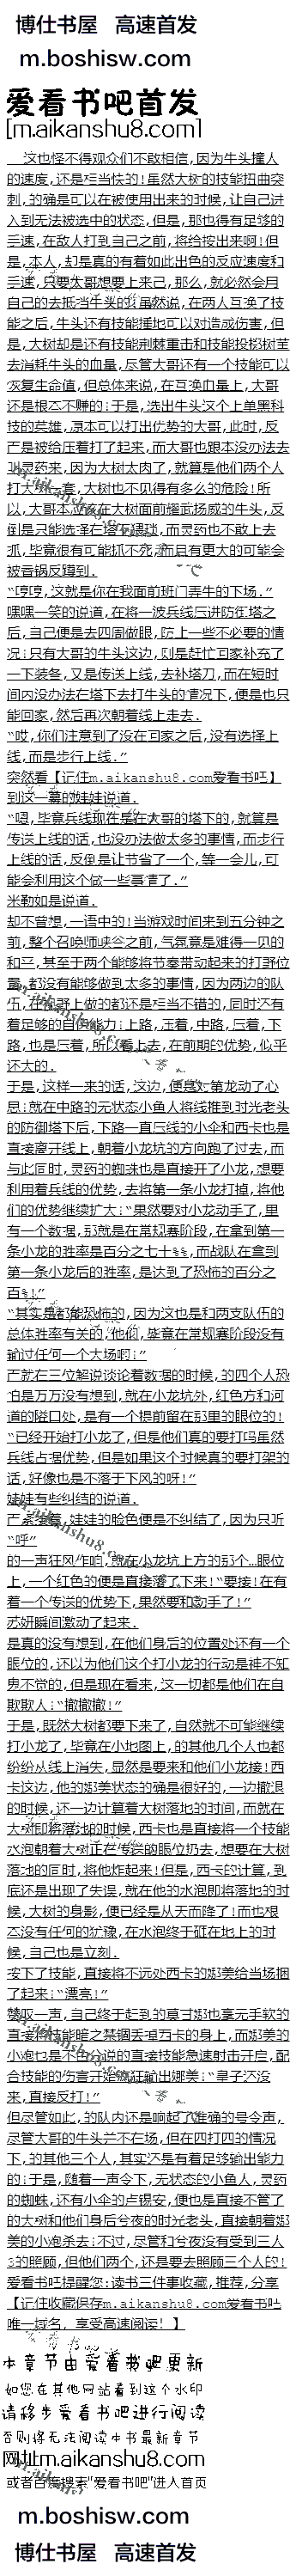 博仕书屋 高速首发
m.boshisw.com
爱看书吧首发
[m.aikanshu8.com]
这也怪不得观众们不敢相信,因为牛头撞人
的速度,还是相当快的!虽然大树的技能扭曲突
刺,的确是可以在被使用出来的时候,让自己进
入到无法被选中的状态,但是,那也得有足够的
手速,在敌人打到自己之前,将给按出来啊!但
是,本人,却是真的有着如此出色的反应速度和
手速,只要大哥想要上来己,那么,就必然会用
自己的去抵当牛头的:虽然说,在两人互换了技
能之后,牛头还有技能捶地可以对造成伤害,但
是,大树却是还有技能荆棘重击和技能投掷树苗
去消耗牛头的血量,尽管大哥还有一个技能可以
恢复生命值,但总体来说,在互换血量上,大哥
还是根本不赚的:于是,选出牛头这个上单黑科
技的英雄,原本可以打出优势的大哥,此时,反
而是被给压着打了起来,而大哥也跟本没办法去
找灵药来,因为大树太肉了,就算是他们两个人
打大树一套,大树也不见得有多么的危险!所
以,大哥本想要在大树面前耀武扬威的牛头,反
倒是只能选择在塔下猥琐,而灵药也不敢上去
抓,毕竟很有可能抓不死,而且有更大的可能会
被香锅反蹲到.
“哼哼,这就是你在我面前班门弄牛的下场.”
嘿嘿一笑的说道,在将一波兵线压进防御塔之
后,自己便是去四周做眼,防上一些不必要的情
况:只有大哥的牛头这边,则是赶忙回家补充了
一下装备,又是传送上线,去补塔刀,而在短时
间内没办法在塔下去打牛头的情况下,便是也只
能回家,然后再次朝着线上走去.
“哎,你们注意到了没在回家之后,没有选择上
线,而是步行上线.”
突然看【记住m.aikanshu8.com爱看书吧】
到这一幕的娃娃说道.
“嗯,毕竟兵线现在是在大哥的塔下的,就算是
传送上线的话,也没办法做太多的事情,而步行
上线的话,反倒是让节省了一个,等一会儿,可
能会利用这个做一些事情了.”
米勒如是说道.
却不曾想,一语中的!当游戏时间来到五分钟之
前,整个召唤师峡谷之前,气氛竟是难得一见的
和平,甚至于两个能够将节奏带动起来的打野位
置,都没有能够做到太多的事情,因为两边的队
伍,在视野上做的都还是相当不错的,同时还有
着足够的自保能力:上路,压着,中路,压着,下
路,也是压着,所以看上去,在前期的优势,似乎
还大的.
于是,这样一来的话,这边,便是对第龙动了心
思:就在中路的无状态小鱼人将线推到时光老头
的防御塔下后,下路一直压线的小伞和西卡也是
直接离开线上,朝着小龙坑的方向跑了过去,而
与此同时,灵药的蜘蛛也是直接开了小龙,想要
利用着兵线的优势,去将第一条小龙打掉,将他
们的优势继续扩大:“果然要对小龙动手了,里
有一个数据,那就是在常规赛阶段,在拿到第一
条小龙的胜率是百分之七十%%,而战队在拿到
第一条小龙后的胜率,是达到了恐怖的百分之
百%!”
“其实是都能恐怖的,因为这也是和两支队伍的
总体胜率有关的,他们,毕竟在常规赛阶段没有
输过任何一个大场啊:”
而就在三位解说谈论着数据的时候,的四个人恐
怕是万万没有想到,就在小龙坑外,红色方和河
道的隘口处,是有一个提前留在那里的眼位的!
“已经开始打小龙了,但是他们真的要打吗虽然
兵线占据优势,但是如果这个时候真的要打架的
话,好像也是不落于下风的呀!”
娃娃有些纠结的说道.
而紧接着,娃娃的脸色便是不纠结了,因为只听
“呼”
的一声狂风作响,就在小龙坑上方的那个…眼位
上,一个红色的便是直接落了下来!“要接!在有
着一个传送的优势下,果然要和动手了!”
苏妍瞬间激动了起来.
是真的没有想到,在他们身后的位置处还有一个
眼位的,还以为他们这个打小龙的行动是神不知
鬼不觉的,但是现在看来,这一切都是他们在自
欺欺人:“撤撤撤!”
于是,既然大树都要下来了,自然就不可能继续
打小龙了,毕竟在小地图上,的其他几个人也都
纷纷从线上消失,显然是要来和他们小龙接!西
卡这边,他的娜美状态的确是很好的,一边撤退
的时候,还一边计算着大树落地的时间,而就在
大树即将落地的时候,西卡也是直接将一个技能
水泡朝着大树正在传送的眼位扔去,想要在大树
落地的同时,将他炸起来!但是,西卡的计算,到
底还是出现了失误,就在他的水泡即将落地的时
候,大树的身影,便已经是从天而降了!而也根
本没有任何的犹豫,在水泡终于砸在地上的时
候,自己也是立刻.
按下了技能,直接将不远处西卡的娜美给当场捆
了起来:“漂亮!”
赞叹一声,自己终于赶到的莫甘娜也毫无手软的
直接将技能暗之禁锢丢掉西卡的身上,而娜美的
小炮也是不由分说的直接技能急速射击开启,配
合技能的伤害开始疯狂输出娜美:“皇子还没
来,直接反打!”
但尽管如此,的队内还是响起了准确的号令声,
尽管大哥的牛头并不在场,但在四打四的情况
下,的其他三个人,其实还是有着足够输出能力
的:于是,随着一声令下,无状态的小鱼人,灵药
的蜘蛛,还有小伞的卢锡安,便也是直接不管了
的大树和他们身后兮夜的时光老头,直接朝着娜
美的小炮杀去:不过,尽管和兮夜没有受到三人
3的照顾,但他们两个,还是要去照顾三个人的!
爱看书吧提醒您:读书三件事收藏,推荐,分享
【记住收藏保存m.aikanshu8.com爱看书吧
唯一域名，享受高速阅读！】
本章节由爱看书吧更新
如您在其他网站看到这个水印
请移步爱看书吧进行阅读
否则将无法阅读本书最新章节
网址m.aikanshu8.com
或者百度搜索"爱看书吧"进入首页
m.boshisw.com
博仕书屋 高速首发